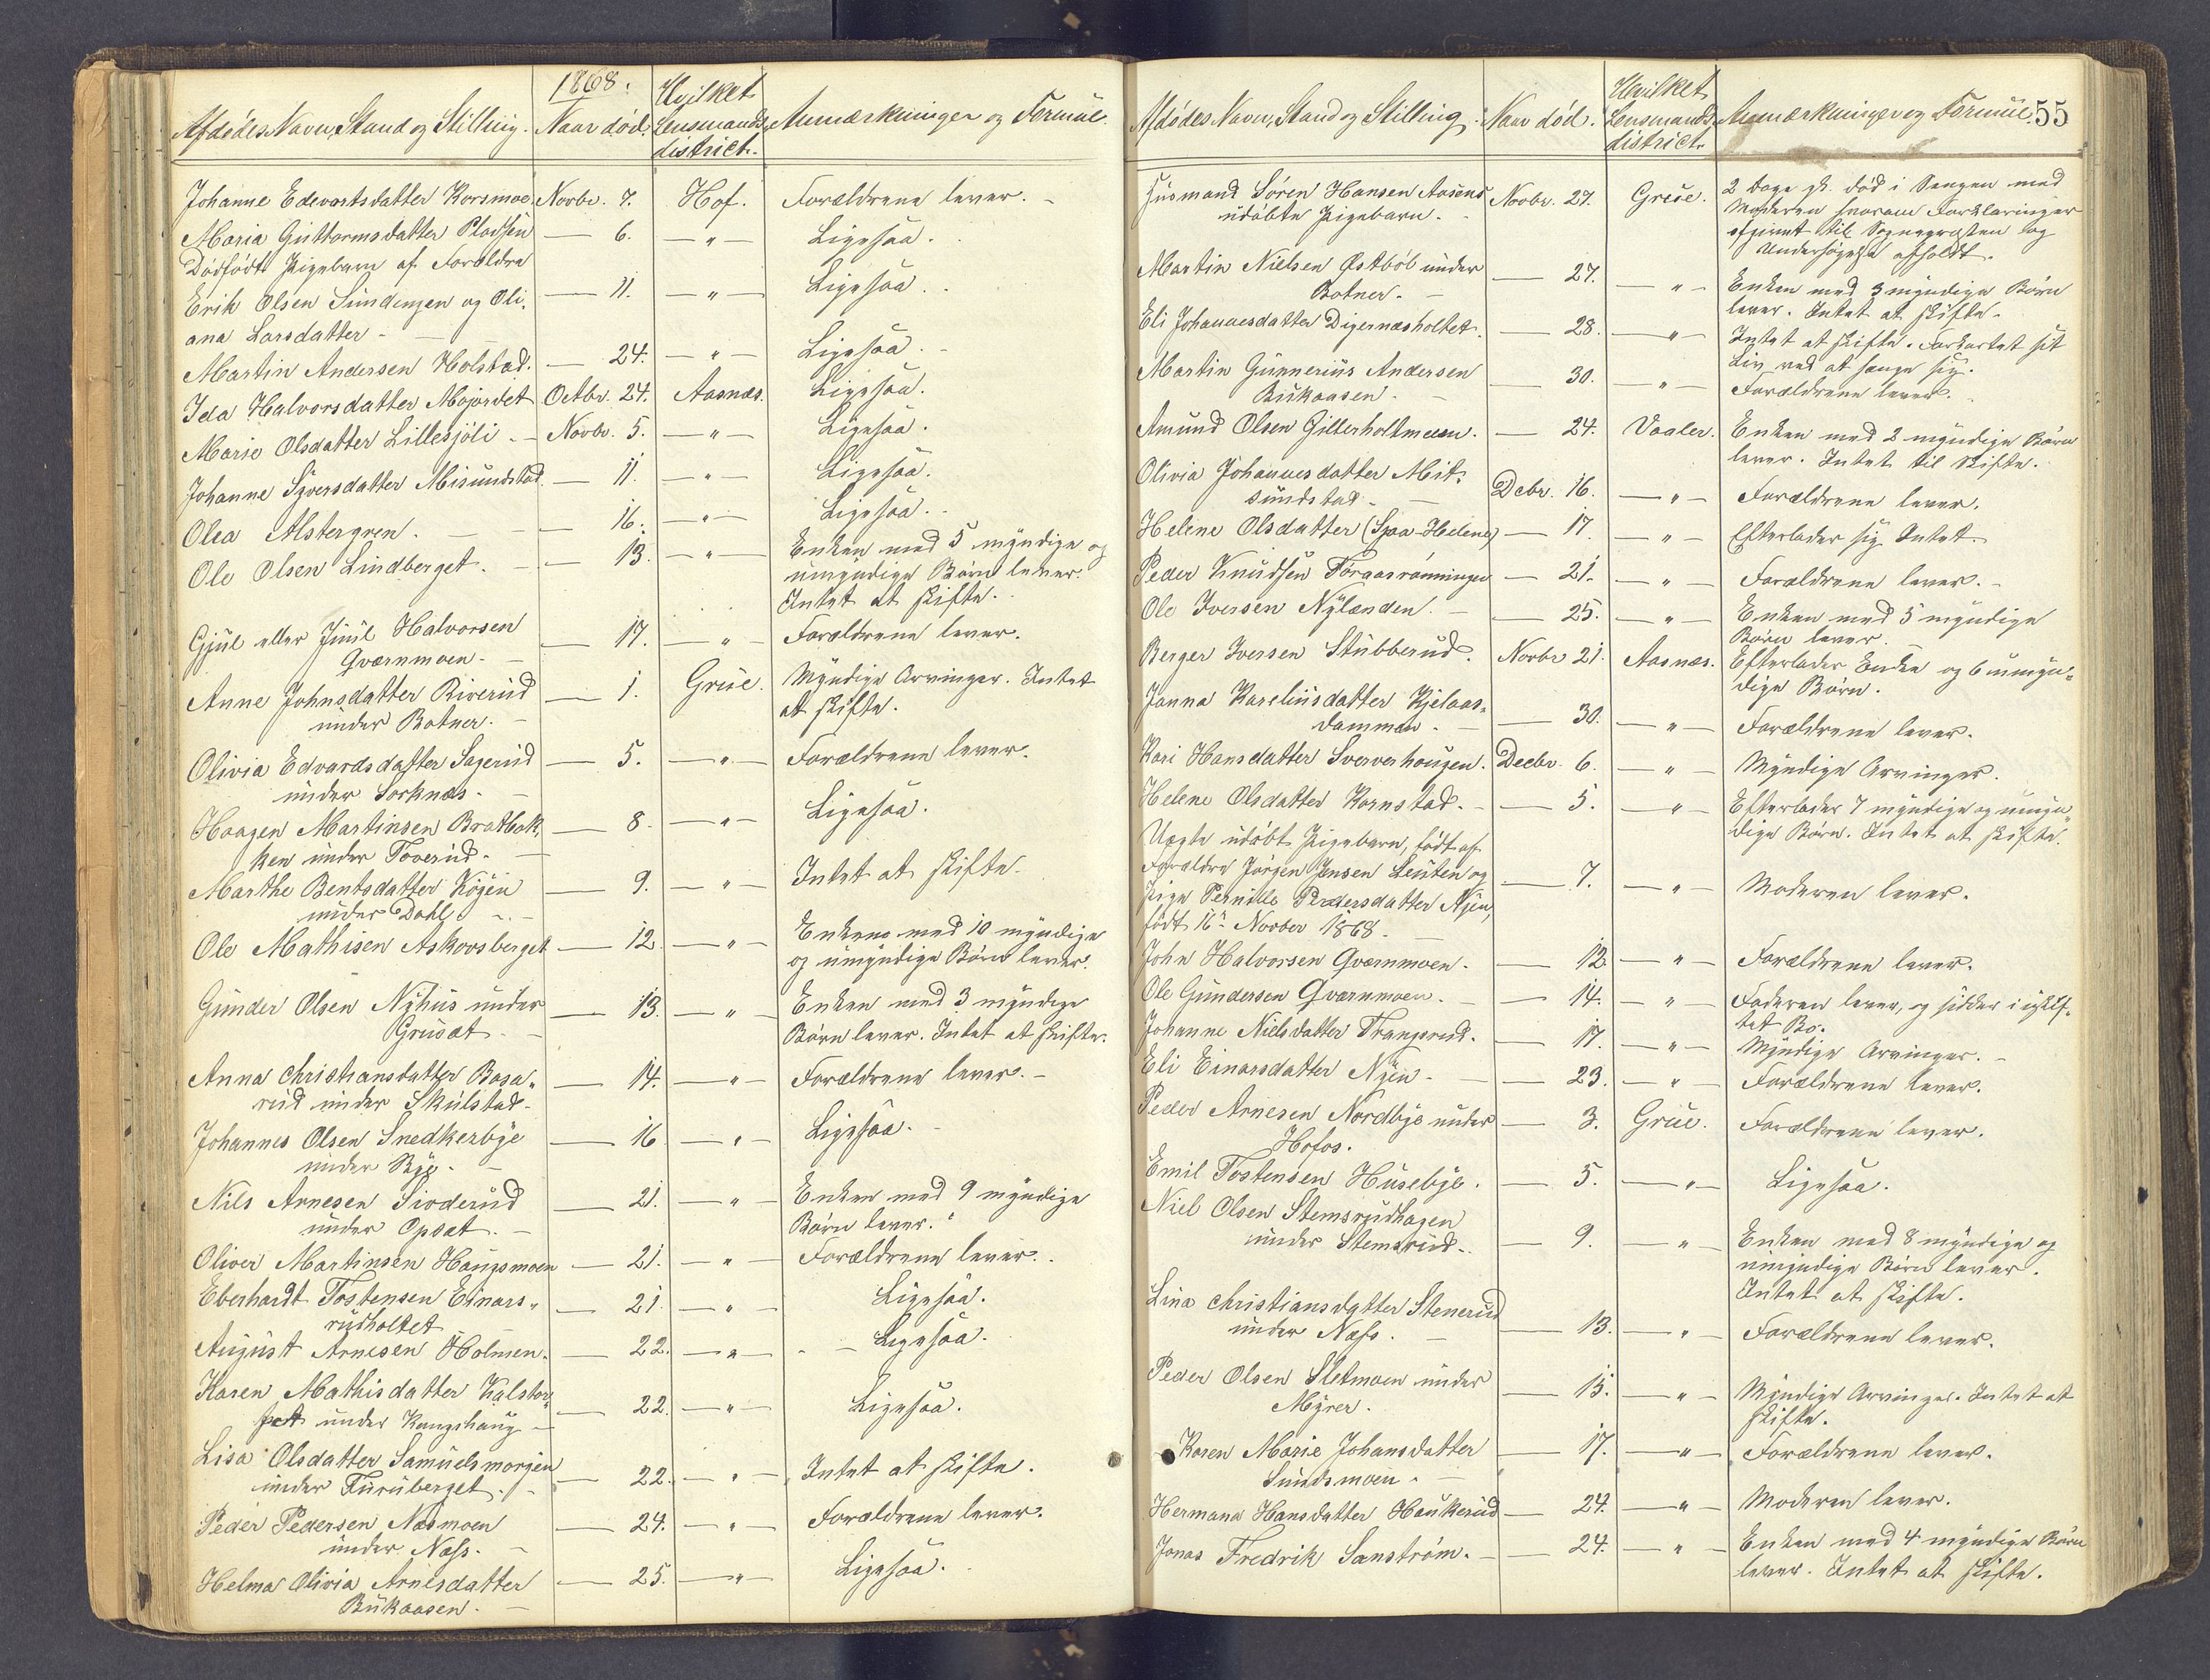 1868.
Afdødes Navn, Stand og Stilling. Naar død. Hvilket Lensmands district. Anmærkninger og Formue
Johanne Edevartsdatter Korsmoe Novbr. 7. Hof. Forældrene lever.
Maria Guttormsdatter Pladsen — 6. — " — Ligesaa.
Dødfødt Pigebarn af Forældre
Erik Olsen Sundengen og Oli-
ana Larsdatter — — 11. — " — Ligesaa.
Martin Andersen Holstad. — 24. — " — Ligesaa.
Ida Halvorsdatter Mojordet Octbr. 24. Aasnæs. Ligesaa.
Marie Olsdatter Lillesjøli — Novbr. 5. — " — Ligesaa.
Johanne Syversdatter Misundstad — 11. — " — Ligesaa.
Olea Alstergren. — — 16. — " — Ligesaa.
Ole Olsen Lindberget. — 13. — " — Enken med 5 myndige og
umyndige Børn lever.
Intet at skifte.
Gjul eller Juul Halvorsen
Qværnmoen. — — 17. — " — Forældrene lever.
Anne Johnsdatter Riverud — 1. Grue. Myndige Arvinger. Intet
under Botner. — at skifte.
Olivia Edvardsdatter Sagerud — 5. — " — Forældrene lever.
under Sorknæs. —
Haagen Martinsen Bratbak- — 8. — " — Ligesaa.
ken under Toverud. —
Marthe Bentsdatter Køjen — 9. — " — Intet at skifte.
under Dahl —
Ole Mathisen Askovsberget — 12. — " — Enken med 10 myndige
og umyndige Børn lever.
Gunder Olsen Nyhus under — 13. — " — Enken med 3 myndige
Grusæt — Børn lever. Intet at skifte.
Anna Christiansdatter Basa- — 14. — " — Forældrene lever. —
rud under Skulstad —
Johannes Olsen Snedkerbye — 16 — " — Ligesaa.
under Bye. —
Nils Arnesen Sioderud — 21. — " — Enken med 9 myndige
under Opsæt. — Børn lever.
Oliver Martinsen Haugsmoen — 21. — " — Forældrene lever.
Eberhardt Tostensen Einars- — 21. — " — Ligesaa.
rudholtet
August Arnesen Holmen. — 22. — " — Ligesaa.
Karen Mathisdatter Kalstor-
pet under Kongshaug — — 22. — " — Ligesaa.
Lisa Olsdatter Samuelsmorgen
under Furuberget. — — 22. — " — Intet at skifte.
Peder Pedersen Næsmoen — 24. — " — Forældrene lever.
under Næss. —
Helma Olivia Arnesdatter — 25. — " — Ligesaa.
Bukaasen. —
Afdødes Navn, Stand og Stilling. Naar død. Hvilket Lensmands district. Anmærkninger og Formue. 55
Husmand Søren Hansen Aasens Novbr. 27. Grue. 2 Dage gl. død i Sengen med
udøbte Pigebarn. — Moderen hvorom Forklaringer
afgivet til Sognepræsten og
Undersøgelse afholdt.
Martin Nielsen Østbøl under — 27. — " — Enken med 3 myndige Børn
Botner. — lever. Intet at skifte.
Eli Johannesdatter Digernæsholtet. — 28. — " — Intet at skifte. Forkortet sit
Liv ved at hænge sig.
Martin Gunnerius Andersen — 30. — " — Forældrene lever.
Bukaasen. —
Amund Olsen Gitterholtmoen. — 24. Vaaler. Enken med 2 myndige Børn
lever. Intet til Skifte.
Olivia Johannesdatter Mit-
sundstad — Decbr. 16. — " — Forældrene lever.
Helene Olsdatter (Spaa-Helene) — 17. — " — Efterlader sig Intet.
Peder Knudsen Føraasrønningen — 21. — " — Forældrene lever.
Ole Iversen Nylænden. — — 25. — " — Enken med 5 myndige
Børn lever.
Berger Iversen Stubberud. Novbr 21. Aasnæs. Efterlader Enke og 6 umyn-
dige Børn.
Janna Kareliusdatter Kjelaas-
dammen. — — 30. — " — Forældrene lever.
Kari Hansdatter Sververhougen. Decbr. 6. — " — Myndige Arvinger.
Helene Olsdatter Kornstad. — — 5. — " — Efterlader 7 myndige og umyn-
dige Børn. Intet at skifte.
Uægte udøbt Pigebarn, født af
Forældre Jørgen Jensen Leuten og
Pige Pernille Pedersdatter Nyen, — 7. — " — Moderen lever.
født 16de Novber 1868.
John Halvorsen Qværnmoen. — 12. — " — Forældrene lever.
Ole Gundersen Qværnmoen. — — 14. — " — Faderen lever, og sidder i uskif-
tet Bo.
Johanne Nielsdatter Trangsrud. — 17. — " — Myndige Arvinger. —
Eli Einarsdatter Nyen — — 23. — " — Forældrene lever.
Peder Arnesen Nordbye under — 3. Grue. Forældrene lever.
Hofos.
Emil Tostensen Husebye. — 5. — " — Ligesaa.
Niel Olsen Stemsrudhagen
under Stemsrud. — — 9. — " — Enken med 8 myndige og
umyndige Børn lever.
Intet at skifte.
Lina Christiansdatter Stenerud
under Næss. — — 13. — " — Forældrene lever.
Peder Olsen Sletmoen under — 15. — " — Myndige Arvinger. Intet at
Myrer. skifte.
Karen Marie Johansdatter — 17. — " — Forældrene lever.
Sundsmoen. —
Hermana Hansdatter Haukerud — 24. — " — Moderen lever.
Jonas Fredrik Sanstrøm. — — 24. — " — Enken med 4 myndige Børn
lever. Intet at skifte.